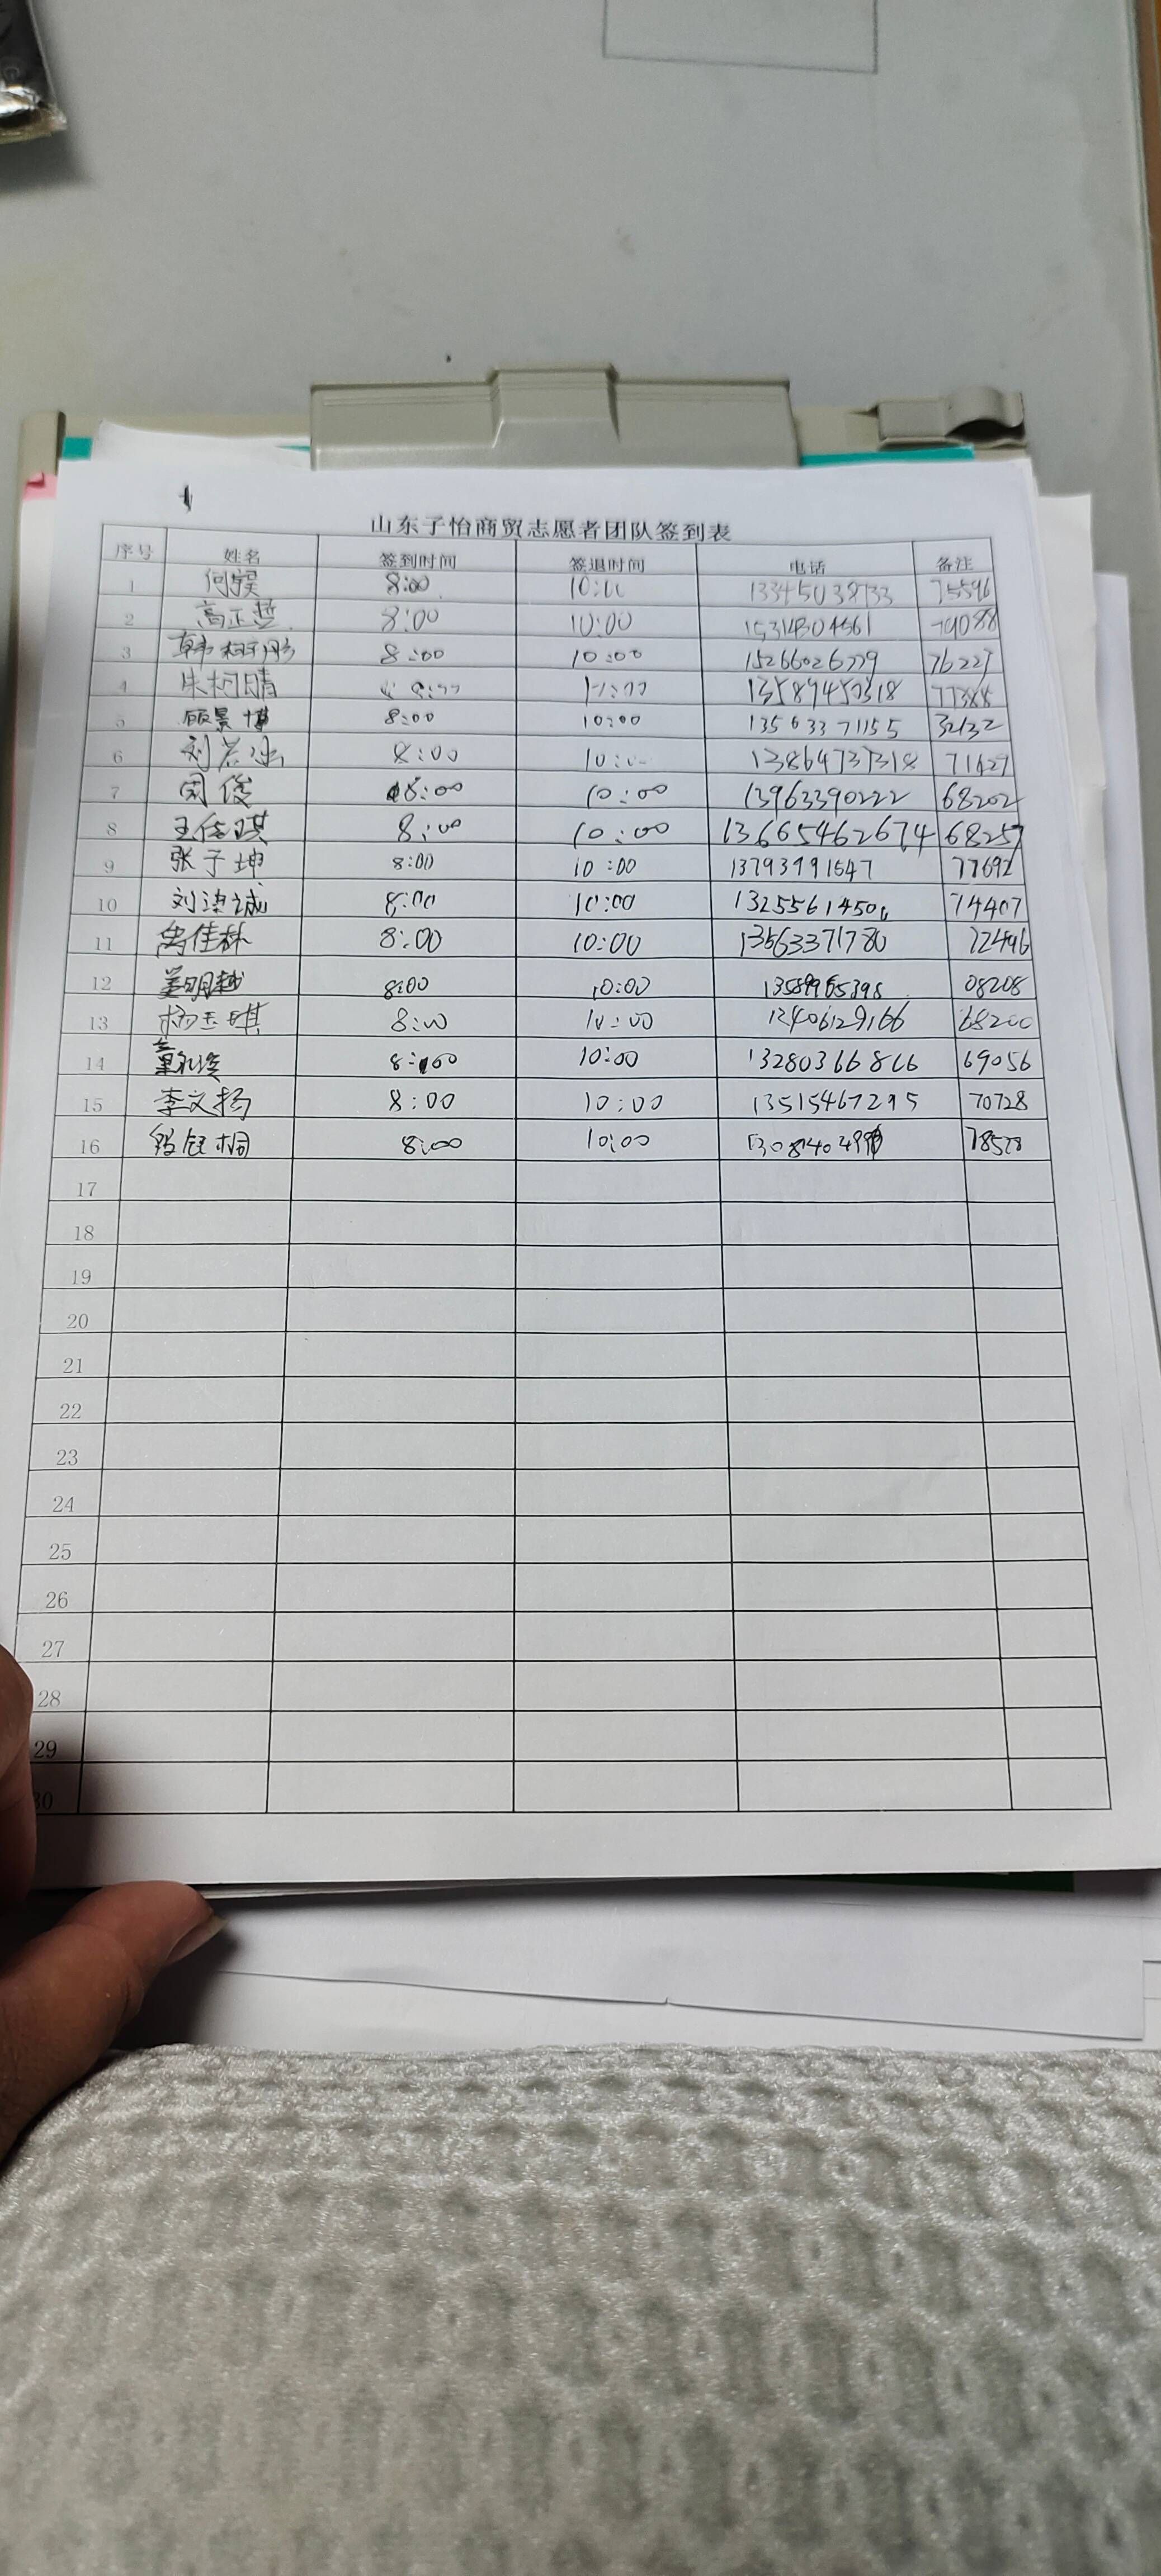 山东子怡商贸志愿者团队签到表
序号 姓名 签到时间 签退时间 电话 备注
1 8:00 10:00 13345038733 75596
2 高正哲 8:00 10:00 15314304661 79088
3 8:00 10:00 15266026779 76227
4 朱柯晴 13589450318 77388
5 顾景博 8:00 10:00 13563371155 32132
6 8:00 13864737318 71627
7 周俊 8:00 10:00 13963390222 68202
8 8:00 10:00 13665462674 68257
9 张子坤 8:00 10:00 13793991547 77692
10 8:00 10:00 74407
11 禹佳林 8:00 10:00 13563371780 72496
12 姜明越 8:00 10:00 08208
13 杨玉琪 8:00 10:00 68200
14 8:00 10:00 13280366866 69056
15 李文扬 8:00 10:00 13515467295 70728
16 8:00 10:00 78528
17
18
19
20
21
22
23
24
25
26
27
28
29
30